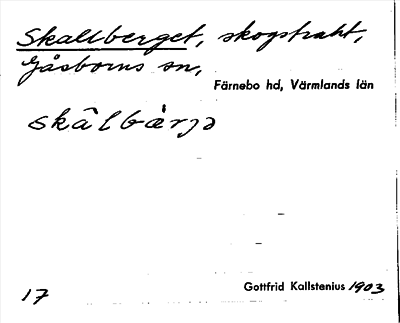 Skallberget, skogstrakt,
Gåsborns sn,
Färnebo hd, Värmlands län
skâlbàrjə
Gottfrid Kallstenius 1903
17